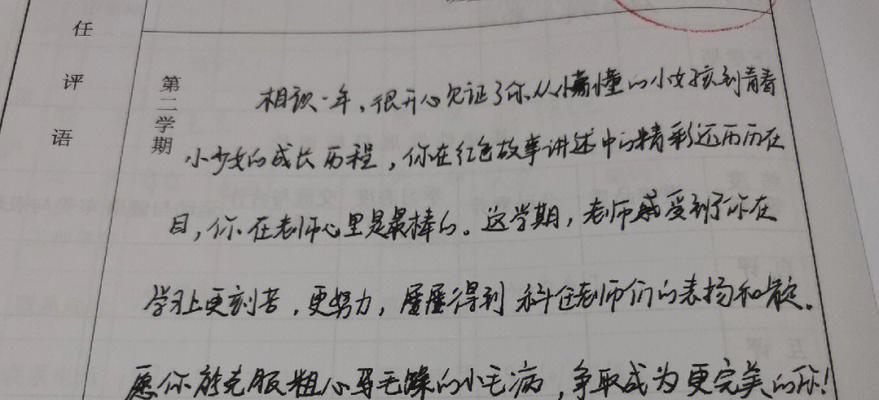 任评语
第二学期
相识一年，很开心见证了你从懵懂的小女孩到青春
小少女的成长历程，你在红色故事讲述中的精彩还历历在
目，你在老师心里是最棒的。这学期，老师感受到了你在
学习上更刻苦，更努力，屡屡得到科任老师们的表扬和肯定。
愿你能克服粗心马毛躁的小毛病，争取成为更完美的你！